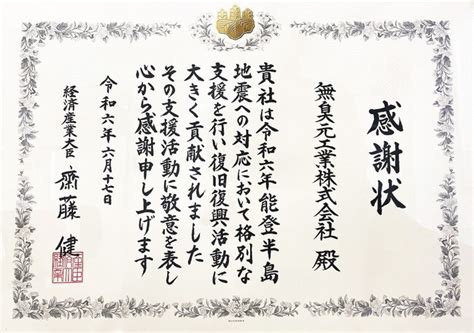 感謝状
無臭元工業株式会社 殿
貴社は令和六年能登半島
地震への対応において格別な
支援を行い復旧復興活動に
大きく貢献されました
その支援活動に敬意を表し
心から感謝申し上げます
令和六年六月十七日
経済産業大臣 齋藤 健